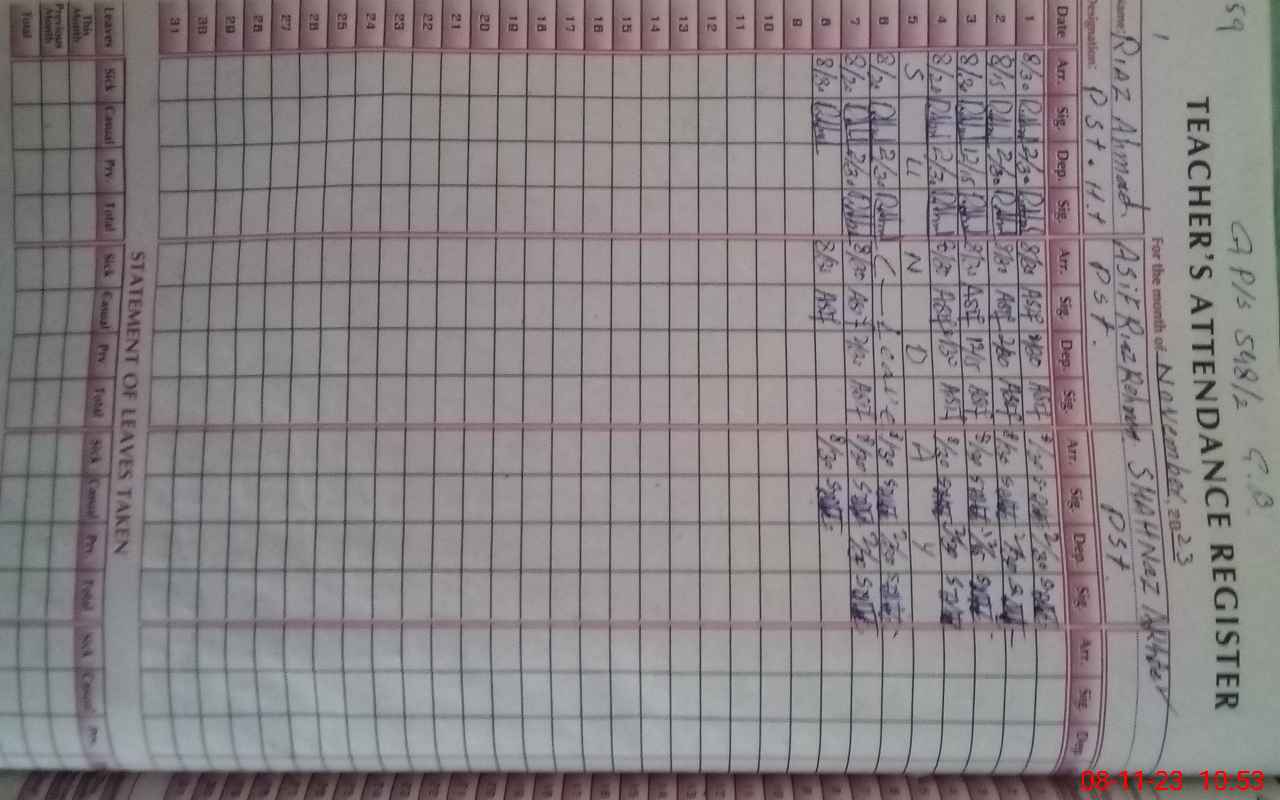 59
G P/S 548/2 G.B.
TEACHER'S ATTENDANCE REGISTER
For the month of November, 2023
1
Name Riaz Ahmad Asif Riaz Rehman SHAHNaz Akhter
Designation: PSt. H.t PSt. PSt
Date Arr. Sig. Dep. Sig. Arr. Sig. Dep. Sig. Arr. Sig. Dep. Sig. Arr. Sig. Dep.
1 8/30 2/30 8/30 ASif 2/30 ASif 8/30 2/30
2 8/15 2/30 8/30 ASif 2/30 ASif 8/30 2/30
3 8/30 12/15 8/30 ASif 12/15 ASif 8/30 12/15
4 8/30 2/30 8/30 ASif 2/30 ASif 8/30 2/30
5 S U N D A Y
6 8/30 2/30 C — Leave 8/30 2/30
7 8/30 2/30 8/30 ASif 2/30 ASif 8/30 2/30
8 8/30 8/30 ASif 8/30
9
10
11
12
13
14
15
16
17
18
19
20
21
22
23
24
25
26
27
28
29
30
31
STATEMENT OF LEAVES TAKEN
Leaves Sick Casual Prv. Total Sick Casual Prv Total Sick Casual Prv. Total Sick Casual Prv.
This Month
Previous Month
Total
08-11-23 10:53